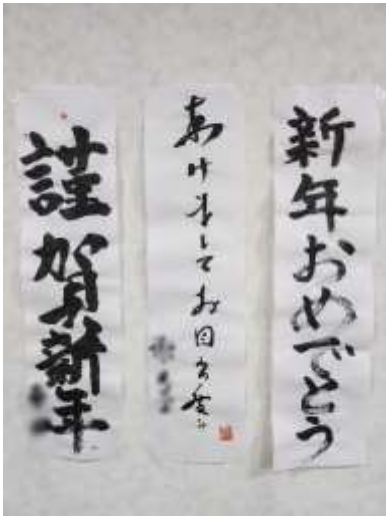 新年おめでとう
あけましてお目出度う
謹賀新年